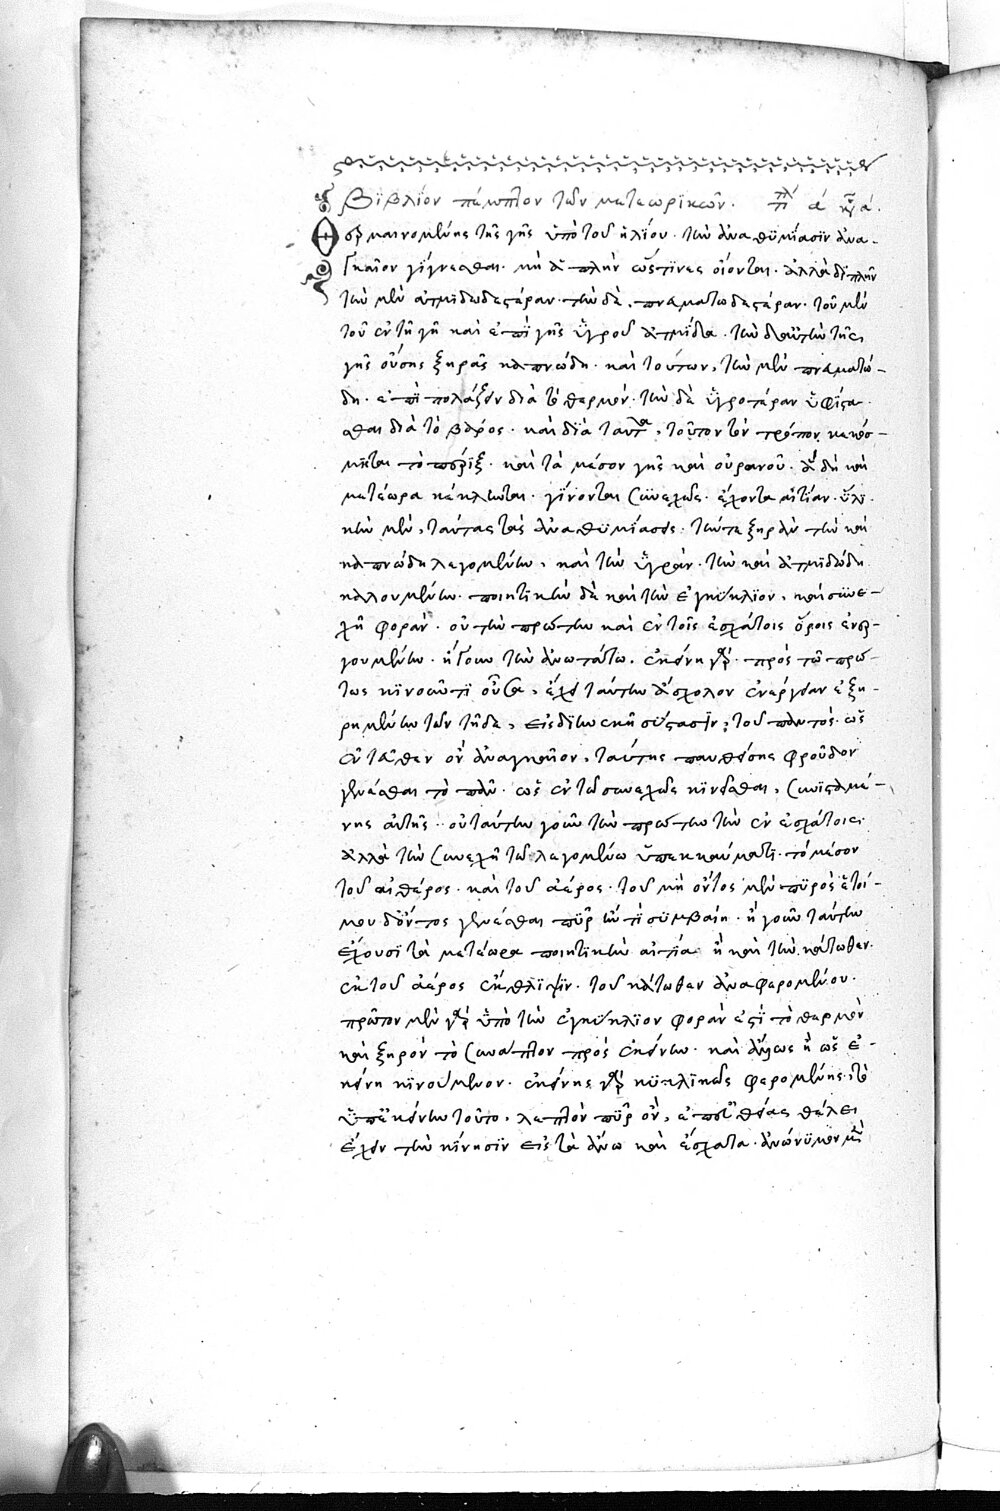 Βϊβλίον πέμπτον τῶν μετεωρικῶν. α α.
Θερμαινομένης τῆς γῆς ὑπὸ τοῦ ἡλίου. τὴν ἀναθϋμίασϊν ἀνα-
γκαῖον γίγνεσθαι. μὴ ἁπλῆν ὥς τϊνες οἴονται. ἀλλὰ δϊπλῆν
τὴν μὲν ἀτμϊδωδεστέραν. τὴν δὲ, πνεματωδεστέραν. τοῦ μὲν
τοῦ ἐν τῆ γῆ καὶ ἐπὶ γῆς ὑγροῦ ἀτμίδα. τὴν δ αὐτῆς
γῆς οὔσης ξηρᾶς καπνώδη. καὶ τούτων, τὴν μὲν πνεματώ-
δη. ἐπιπολάζειν διὰ τὸ θερμόν. τὴν δὲ ὑγροτέραν ὑφίστα-
σθαι διὰ τὸ βάρος. καὶ δϊὰ ταῦτα, τοῦτον τὸν τρόπον κεκόσ-
μηται τὸ πέρϊξ. καὶ τὰ μέσον γῆς καὶ οὐρανοῦ. ἃ δὴ καὶ
μετέωρα κέκληται. γίνονται συνεχῶς. ἔχοντα αἰτίαν. ὑλϊ-
κὴν μὲν, ταύτας τὰς ἀναθϋμϊάσεις. τήν τε ξηρὰν τὴν καὶ
καπνώδη λεγομένην, καὶ τὴν ὑγράν. τὴν καὶ ἀτμϊδώδη
καλουμένην. ποιητϊκὴν δὲ καὶ τὴν ἐγκύκλϊον, καὶ συνε-
χῆ φοράν. οὐ τὴν πρώτην καὶ ἐν τοῖς ἐσχάτοις ὅροις ἐνερ-
γουμένην. ἤγουν τὴν ἀνωτάτω. ἐκείνη γὰρ. πρὸς τῶ πρώ-
τως κϊνοῦντϊ οὖσα, ἔχει ταύτην ἄσχολον ἐνέργειαν ἐξη-
ρημένην τῶν τῆδε, τοῦ παντός. ὡς
ἐντεῦθεν οὖν ἀναγκαῖον, ταύτης παυθείσης φροῦδον
γενέσθαι τὸ πᾶν. ὡς ἐν τῶ συνεχῶς κϊνεῖσθαι, συνϊσταμέ-
νης αὐτῆς. οὐ ταύτην γοῦν τὴν πρώτην τὴν ἐν ἐσχάτοις
ἀλλὰ τὴν συνεχῆ τῶ λεγομένω ὑπεκκαύματϊ. τὸ μέσον
τοῦ αἰθέρος. καὶ τοῦ ἀέρος. τοῦ μὴ ὄντος μὲν πϋρὸς ἑτοί-
μου δόντος γενέσθαι πῦρ ἄν τϊ συμβαίη. ἢ γοῦν ταύτην
ἔχουσϊ τὰ μετέωρα ποιητϊκὴν αἰτία ἢ καὶ τὴν κάτωθεν.
ἐκ τοῦ ἀέρος ἔκθλϊψϊν. τοῦ κάτωθεν ἀναφερομένου.
πρῶτον μὲν γὰρ ὑπὸ τὴν ἐγκύκλϊον φοράν ἐστϊ τὸ θερμὸν
καὶ ξηρὸν τὸ συνάπτον πρὸς ἐκείνην. καὶ ἄλλως ἢ ὡς ἐ-
κείνη κϊνούμενον. ἐκείνης γὰρ κϋκλϊκῶς φερομένης. τὸ
ὑπ ἐκείνην τοῦτο. λεπτὸν πῦρ ὂν, ἐπ εὐθείας θέλει
ἔχειν τὴν κίνησϊν εἰς τὰ ἄνω καὶ ἔσχατα. ἀνώνϋμον μὲν